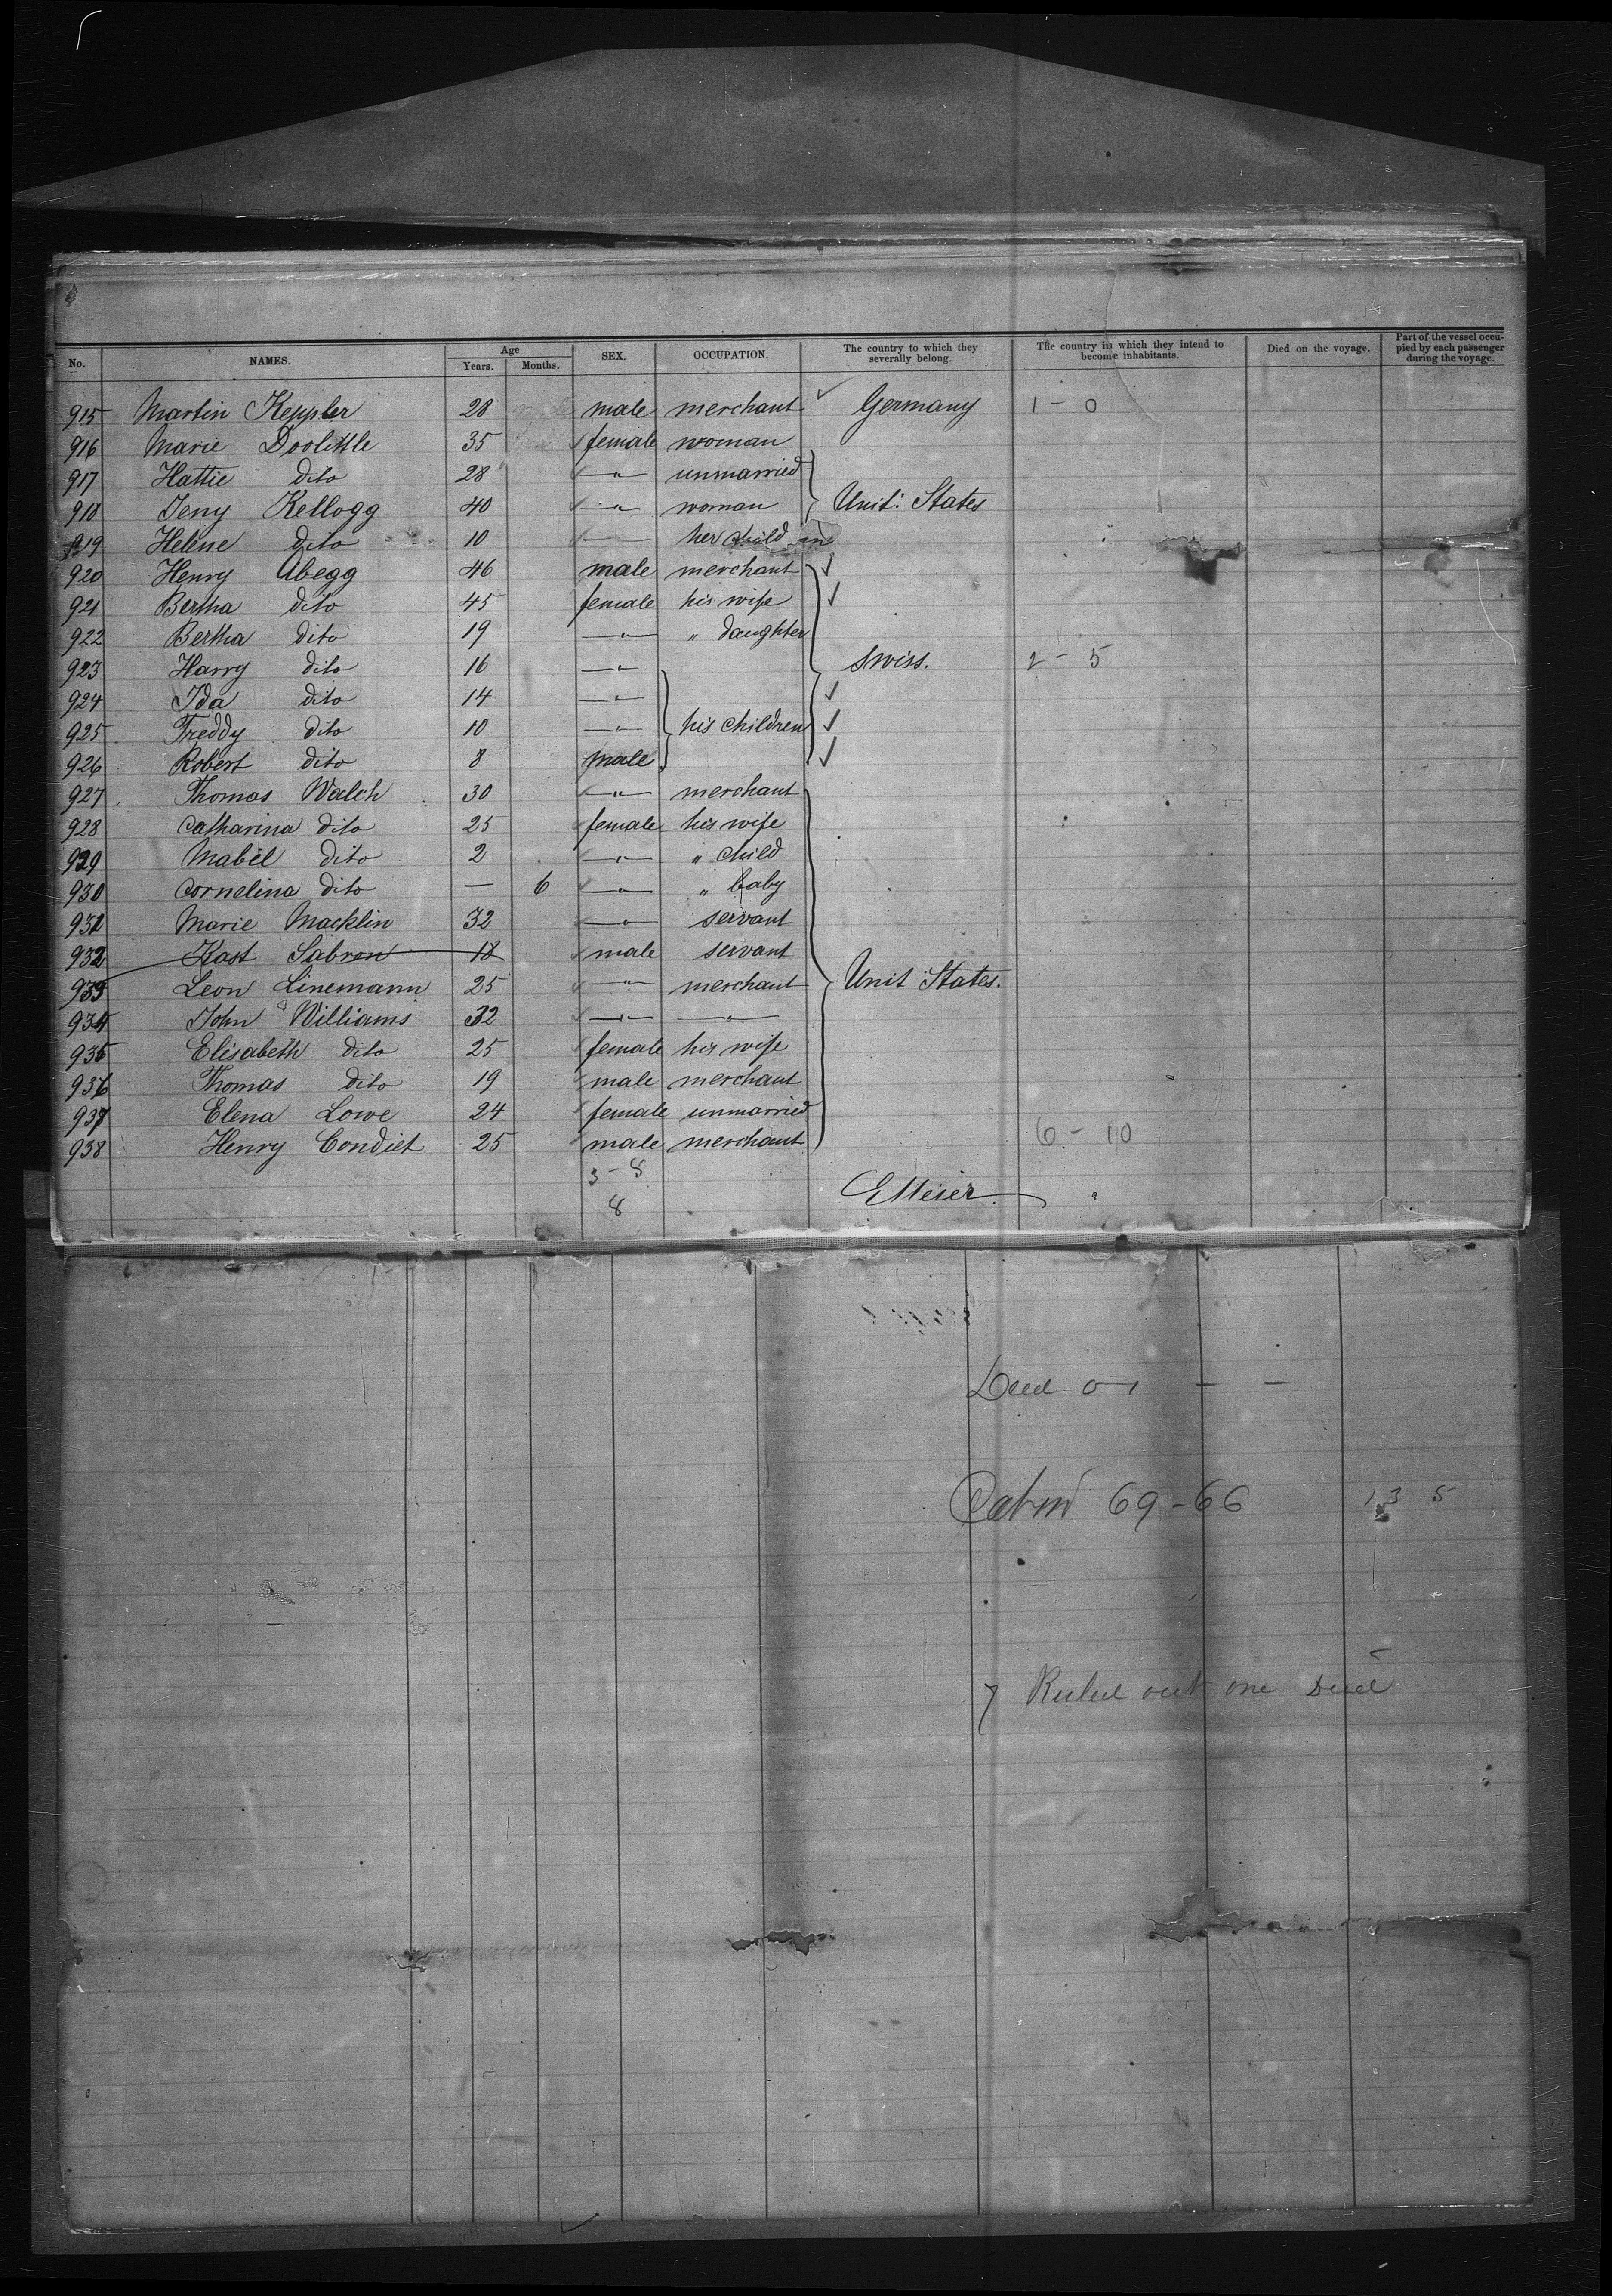 No. NAMES. Age Years. Months. SEX. OCCUPATION. The country to which they severally belong. The country in which they intend to become inhabitants. Died on the voyage. Part of the vessel occupied by each passenger during the voyage.
915 Martin Keppler 28 male merchant Germany 1 - 0
916 Marie Doolittle 35 female woman
917 Hattie dito 28 " unmarried
918 Jeny Kellogg 40 " woman Unit. States
919 Helene dito 10 — her child
920 Henry Abegg 46 male merchant
921 Bertha dito 45 female his wife
922 Bertha dito 19 " " daughter
923 Harry dito 16 " Swiss. 2 - 5
924 Ida dito 14 "
925 Freddy dito 10 " his children
926 Robert dito 8 male
927 Thomas Walch 30 " merchant
928 Catharina dito 25 female his wife
929 Mabel dito 2 " " child
930 Cornelina dito — 6 " " baby
931 Marie Macklin 32 " servant
932 Kast Sabron 18 male servant
933 Leon Linemann 25 " merchant Unit States.
934 John Williams 32 " "
935 Elisabeth dito 25 female his wife
936 Thomas dito 19 male merchant
937 Elena Lowe 24 female unmarried
938 Henry Condict 25 male merchant 6 - 10
3 - 8
8
EMeier
69 - 66 13 5
7 Ruled out one